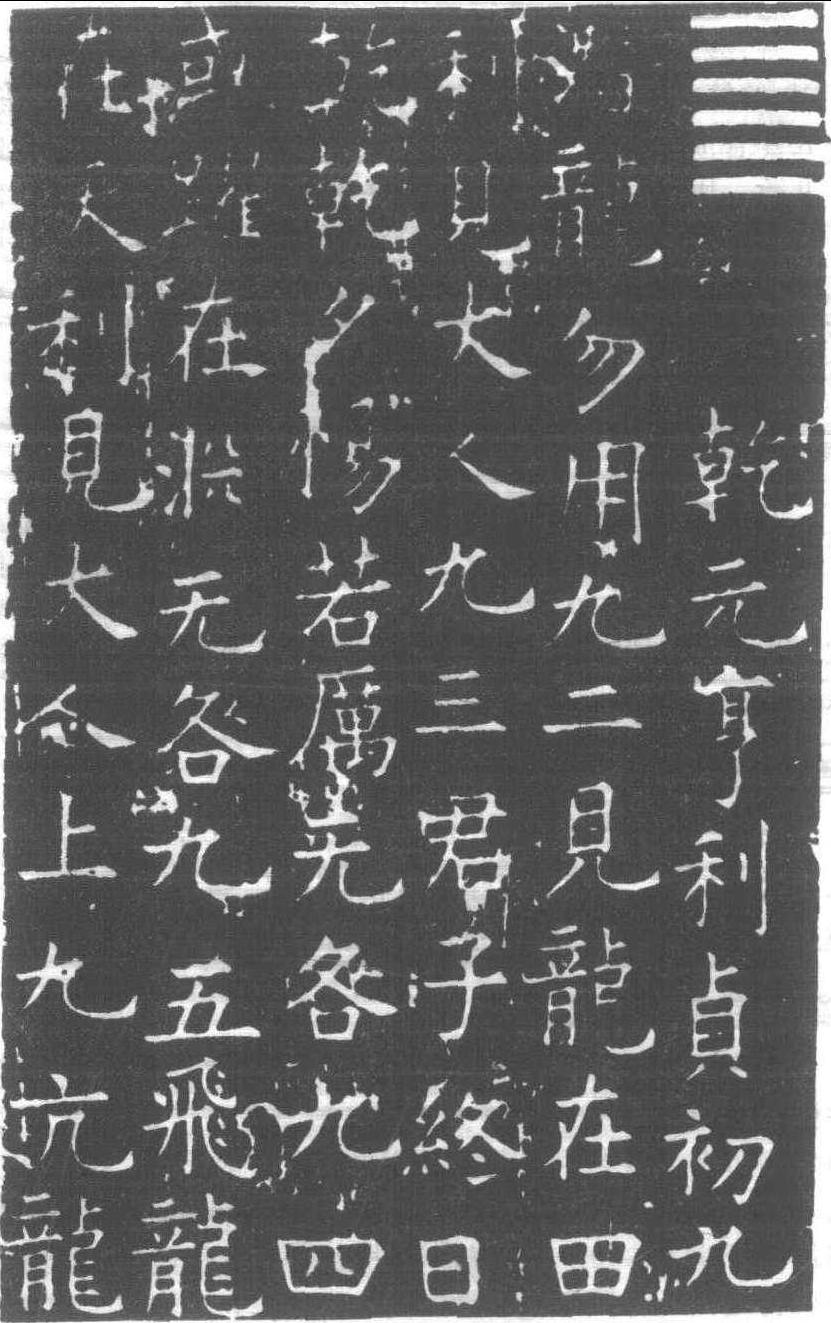 ䷀ 乾元亨利貞初九
潛龍勿用九二見龍在田
利見大人九三君子終日
乾乾夕惕若厲无咎九四
或躍在淵无咎九五飛龍
在天利見大人上九亢龍